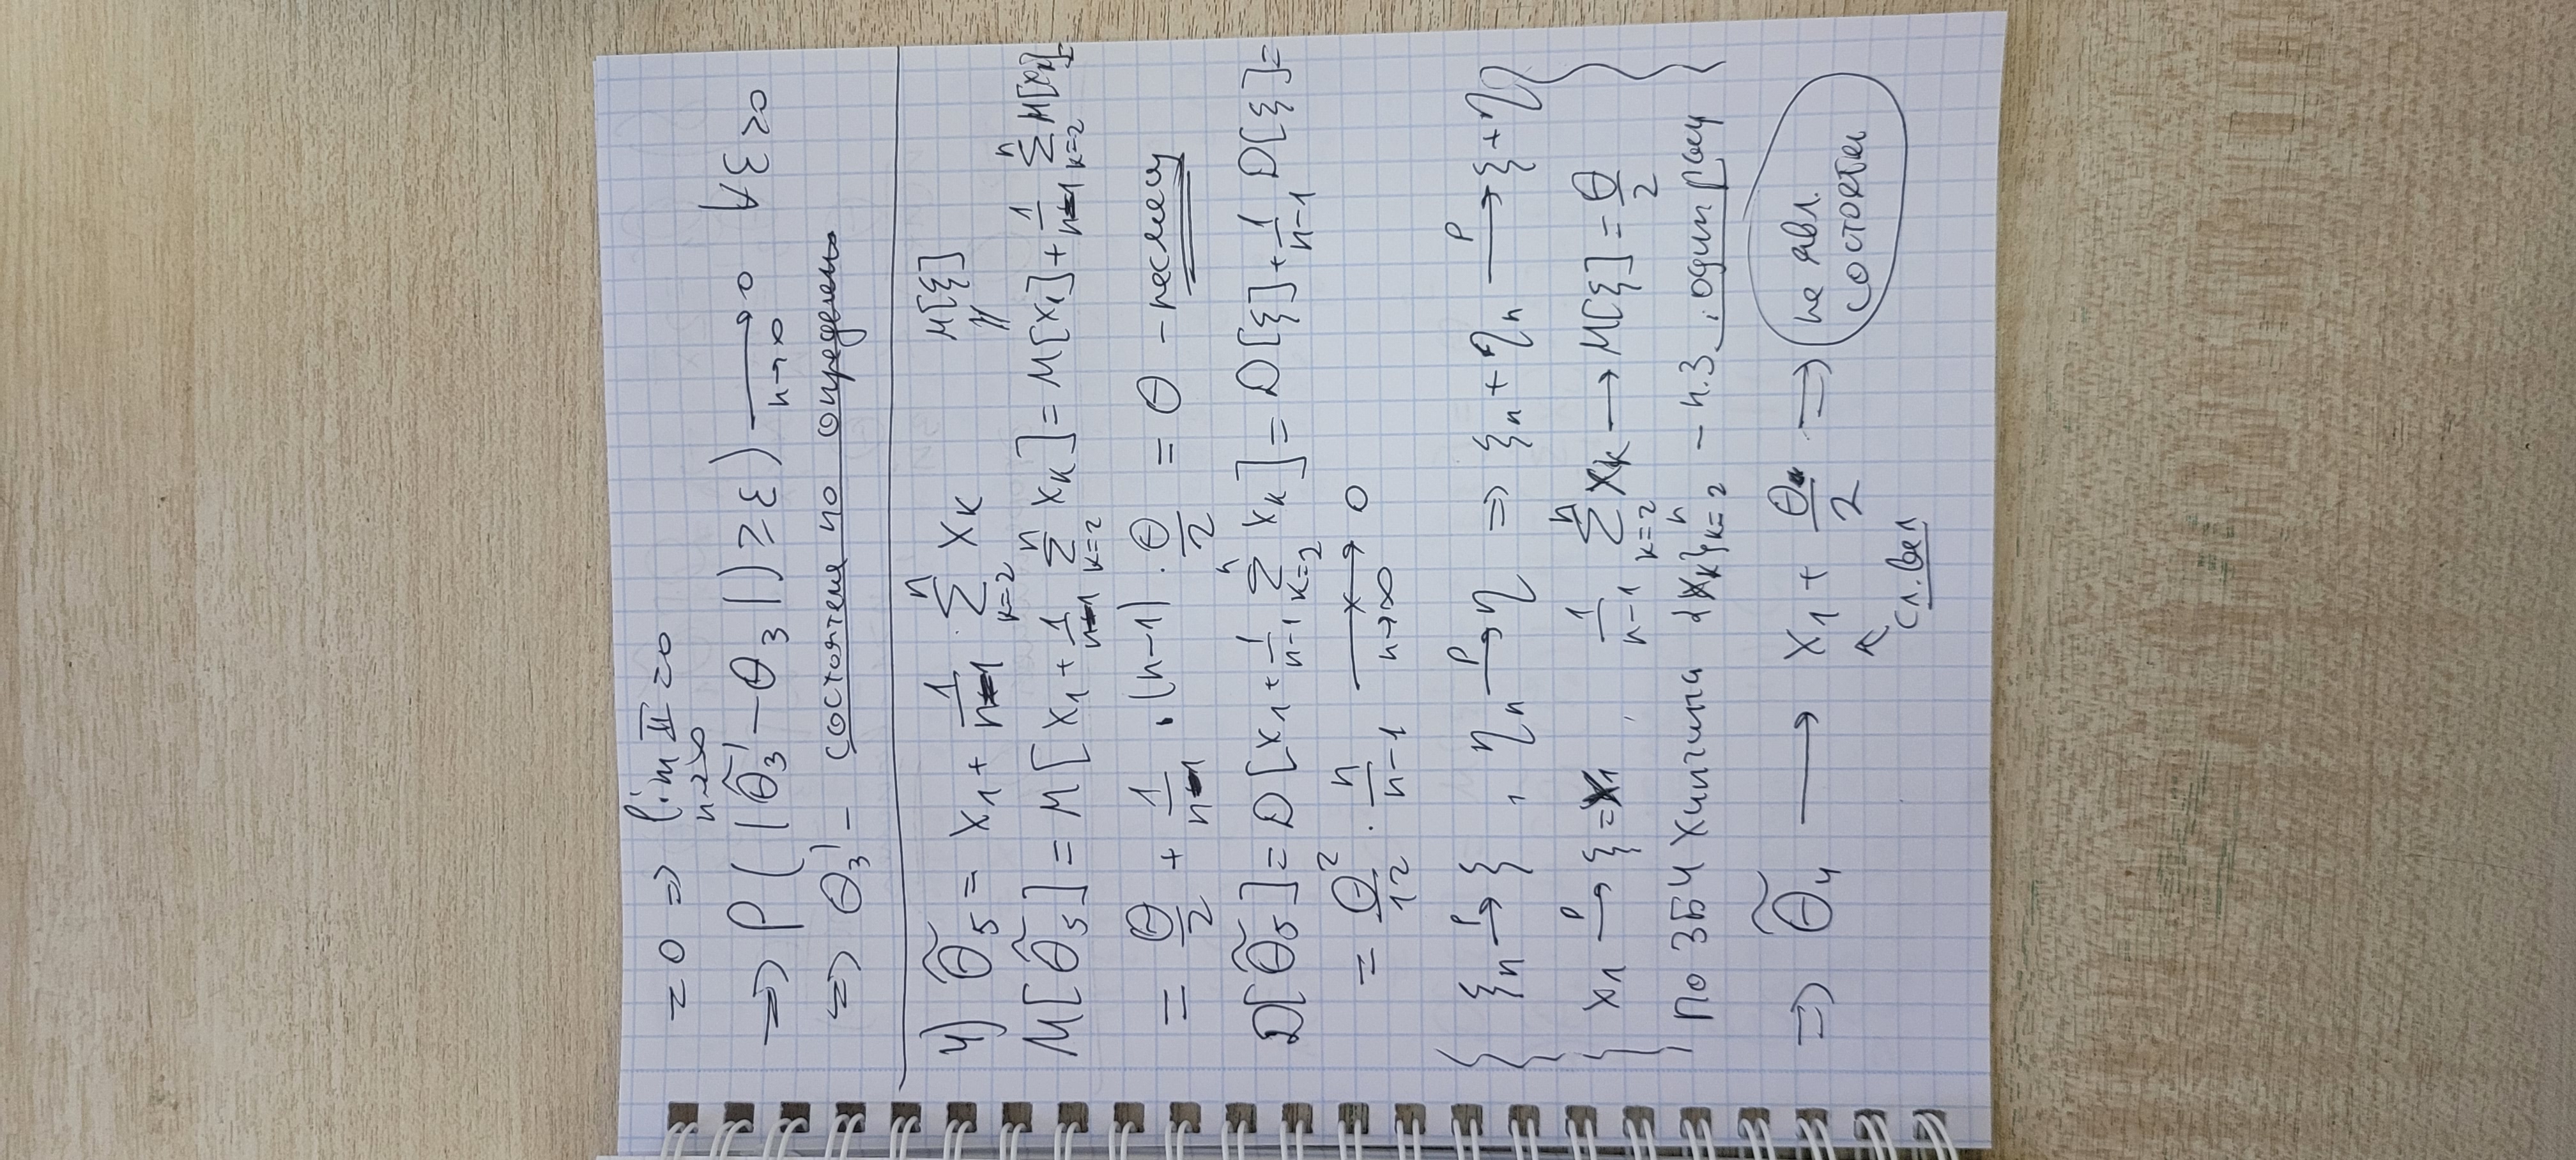 = 0 ⇒ lim II = 0
n→∞
⇒ P(|θ̃₃' − θ₃|) ≥ ε) ⟶ 0 ∀ε>0
n→∞
⇒ θ₃' − состоятелн по определен
4) θ̃₅ = x₁ + 1/(n−1) · ∑_{k=2}^{n} x_k
M[ξ]
||
M[θ̃₅] = M[x₁ + 1/(n−1) ∑_{k=2}^{n} x_k] = M[x₁] + 1/(n−1) ∑_{k=2}^{n} M[x_k] =
= θ/2 + 1/(n−1) · (n−1) · θ/2 = θ − несмещ
D[θ̃₅] = D[x₁ + 1/(n−1) ∑_{k=2}^{n} x_k] = D[ξ] + 1/(n−1) D[ξ] =
= θ²/12 · n/(n−1) ⟶̸ 0
n→∞
{ ξ_n →ᴾ ξ , η_n →ᴾ η ⇒ ξ_n + η_n →ᴾ ξ + η }
x₁ →ᴾ ξ = x₁ , 1/(n−1) ∑_{k=2}^{n} x_k → M[ξ] = θ/2
по ЗБЧ Хинчина {x_k}_{k=2}^{n} − н.з , один расп
⇒ θ̃₄ ⟶ x₁ + θ/2 ⇒ не явл.
состоятел
↖
сл. вел